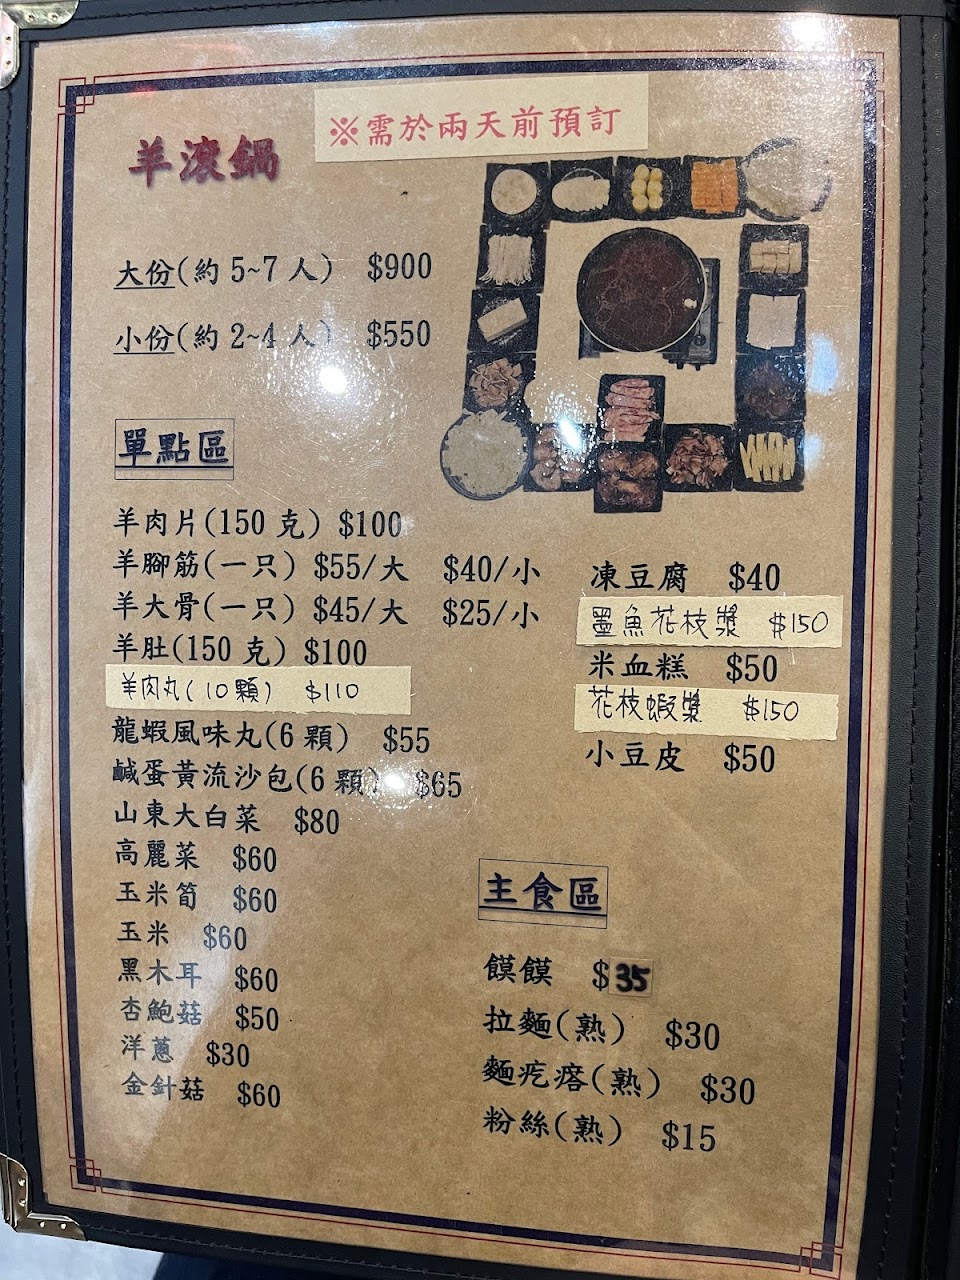 ※需於兩天前預訂
羊滾鍋
大份(約 5~7 人) $900
小份(約 2~4 人) $550
單點區
羊肉片(150 克) $100
羊腳筋(一只) $55/大 $40/小
羊大骨(一只) $45/大 $25/小
羊肚(150 克) $100
羊肉丸(10顆) $110
龍蝦風味丸(6 顆) $55
鹹蛋黃流沙包(6 顆) $65
山東大白菜 $80
高麗菜 $60
玉米筍 $60
玉米 $60
黑木耳 $60
杏鮑菇 $50
洋蔥 $30
金針菇 $60
凍豆腐 $40
墨魚花枝漿 $150
米血糕 $50
花枝蝦漿 $150
小豆皮 $50
主食區
饃饃 $35
拉麵(熟) $30
麵疙瘩(熟) $30
粉絲(熟) $15